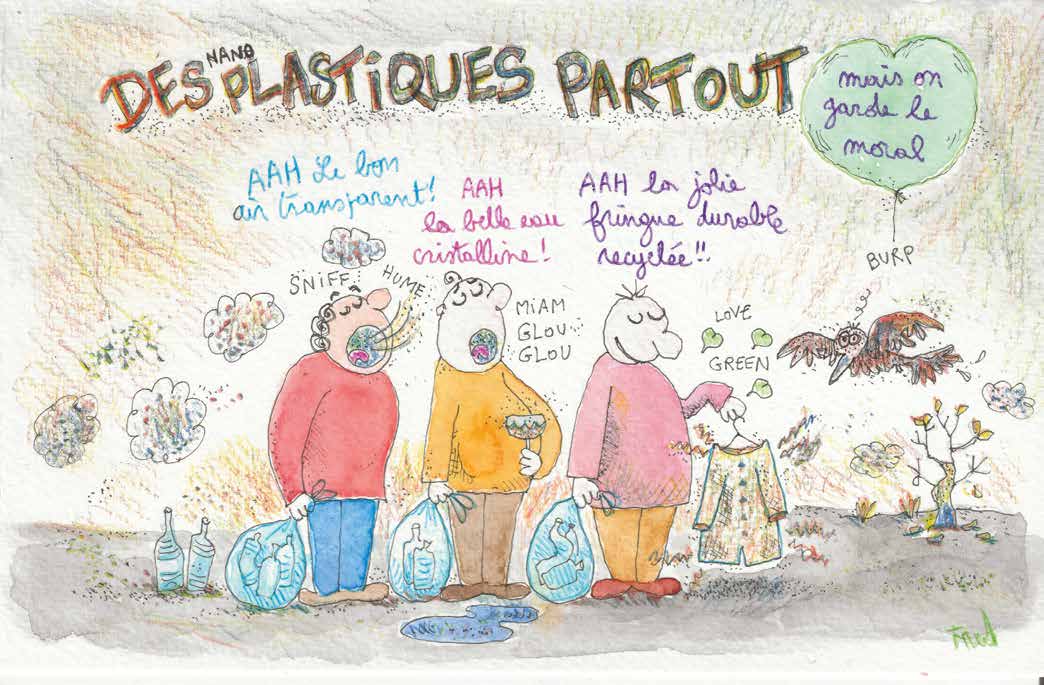 NANO
DES PLASTIQUES PARTOUT
mais on
garde le
moral
AAH Le bon
air transparent!
AAH
la belle eau
cristalline!
AAH la jolie
fringue durable
recyclée!!
SNIFF
HUME
MIAM
GLOU
GLOU
LOVE
GREEN
BURP